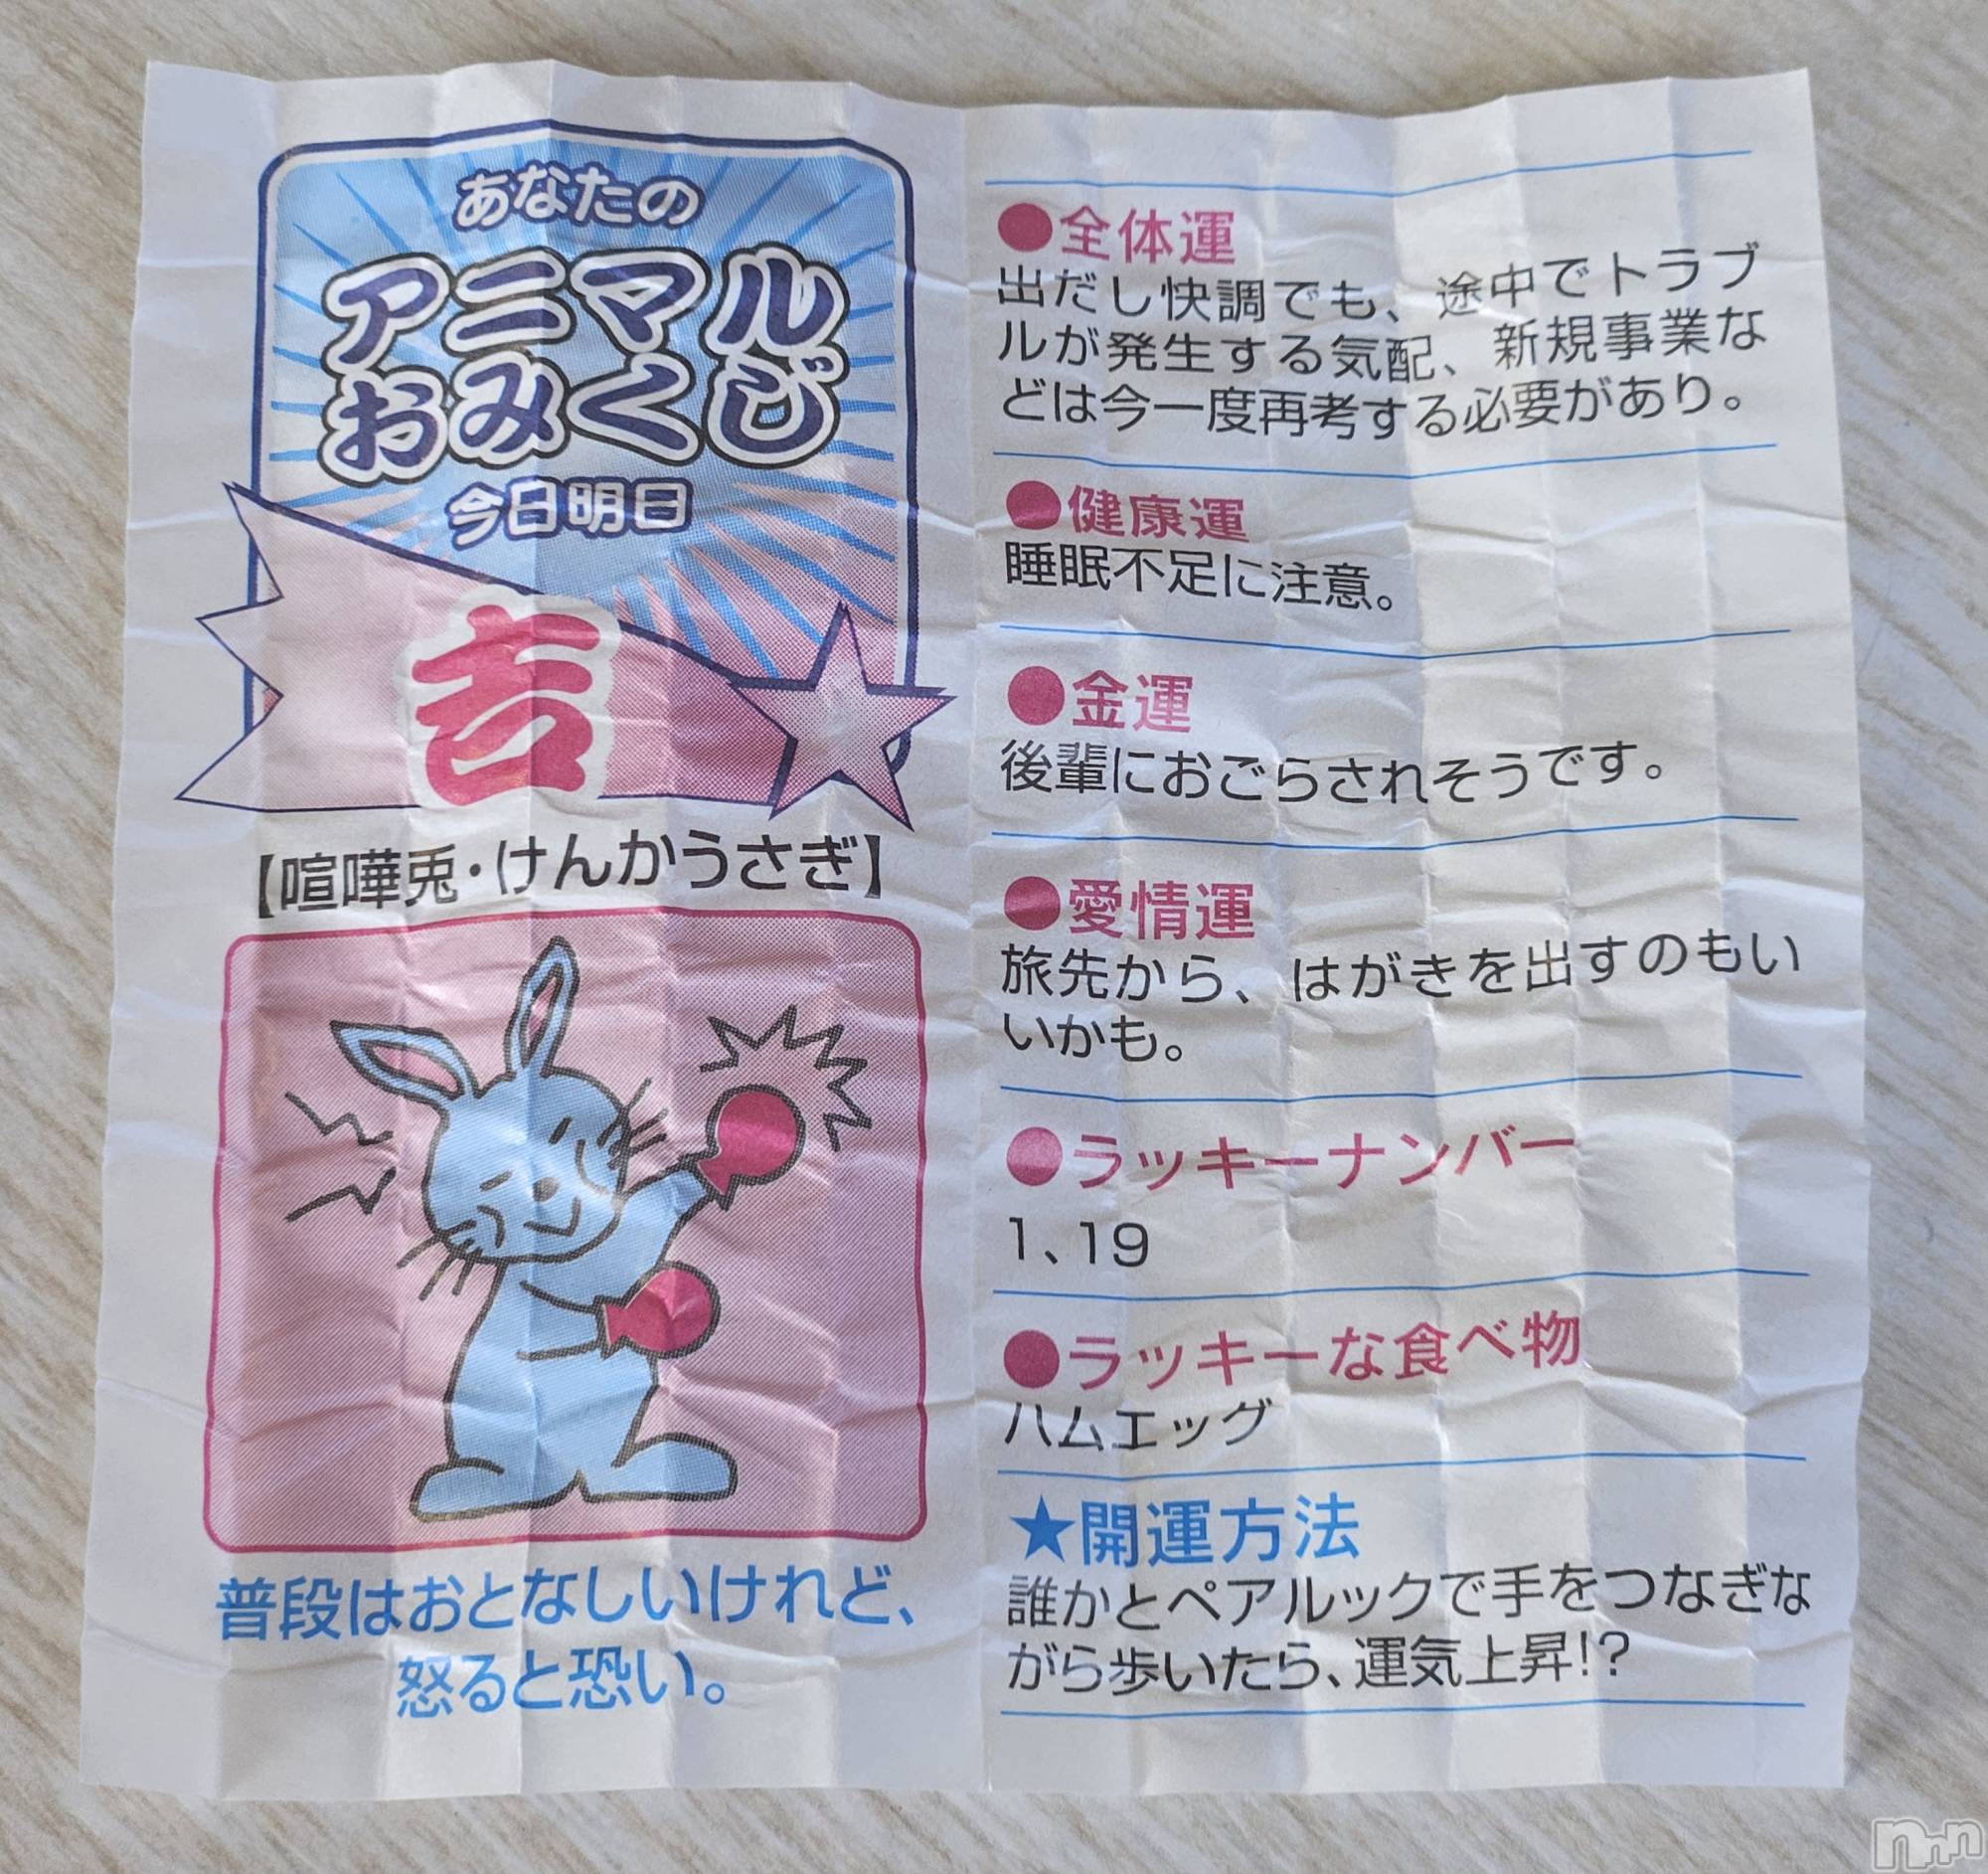 あなたの
アニマル
おみくじ
今日明日
吉
【喧嘩兎・けんかうさぎ】
普段はおとなしいけれど、
怒ると恐い。
●全体運
出だし快調でも、途中でトラブ
ルが発生する気配、新規事業な
どは今一度再考する必要があり。
●健康運
睡眠不足に注意。
●金運
後輩におごらされそうです。
●愛情運
旅先から、はがきを出すのもい
いかも。
●ラッキーナンバー
1、19
●ラッキーな食べ物
ハムエッグ
★開運方法
誰かとペアルックで手をつなぎな
がら歩いたら、運気上昇!?